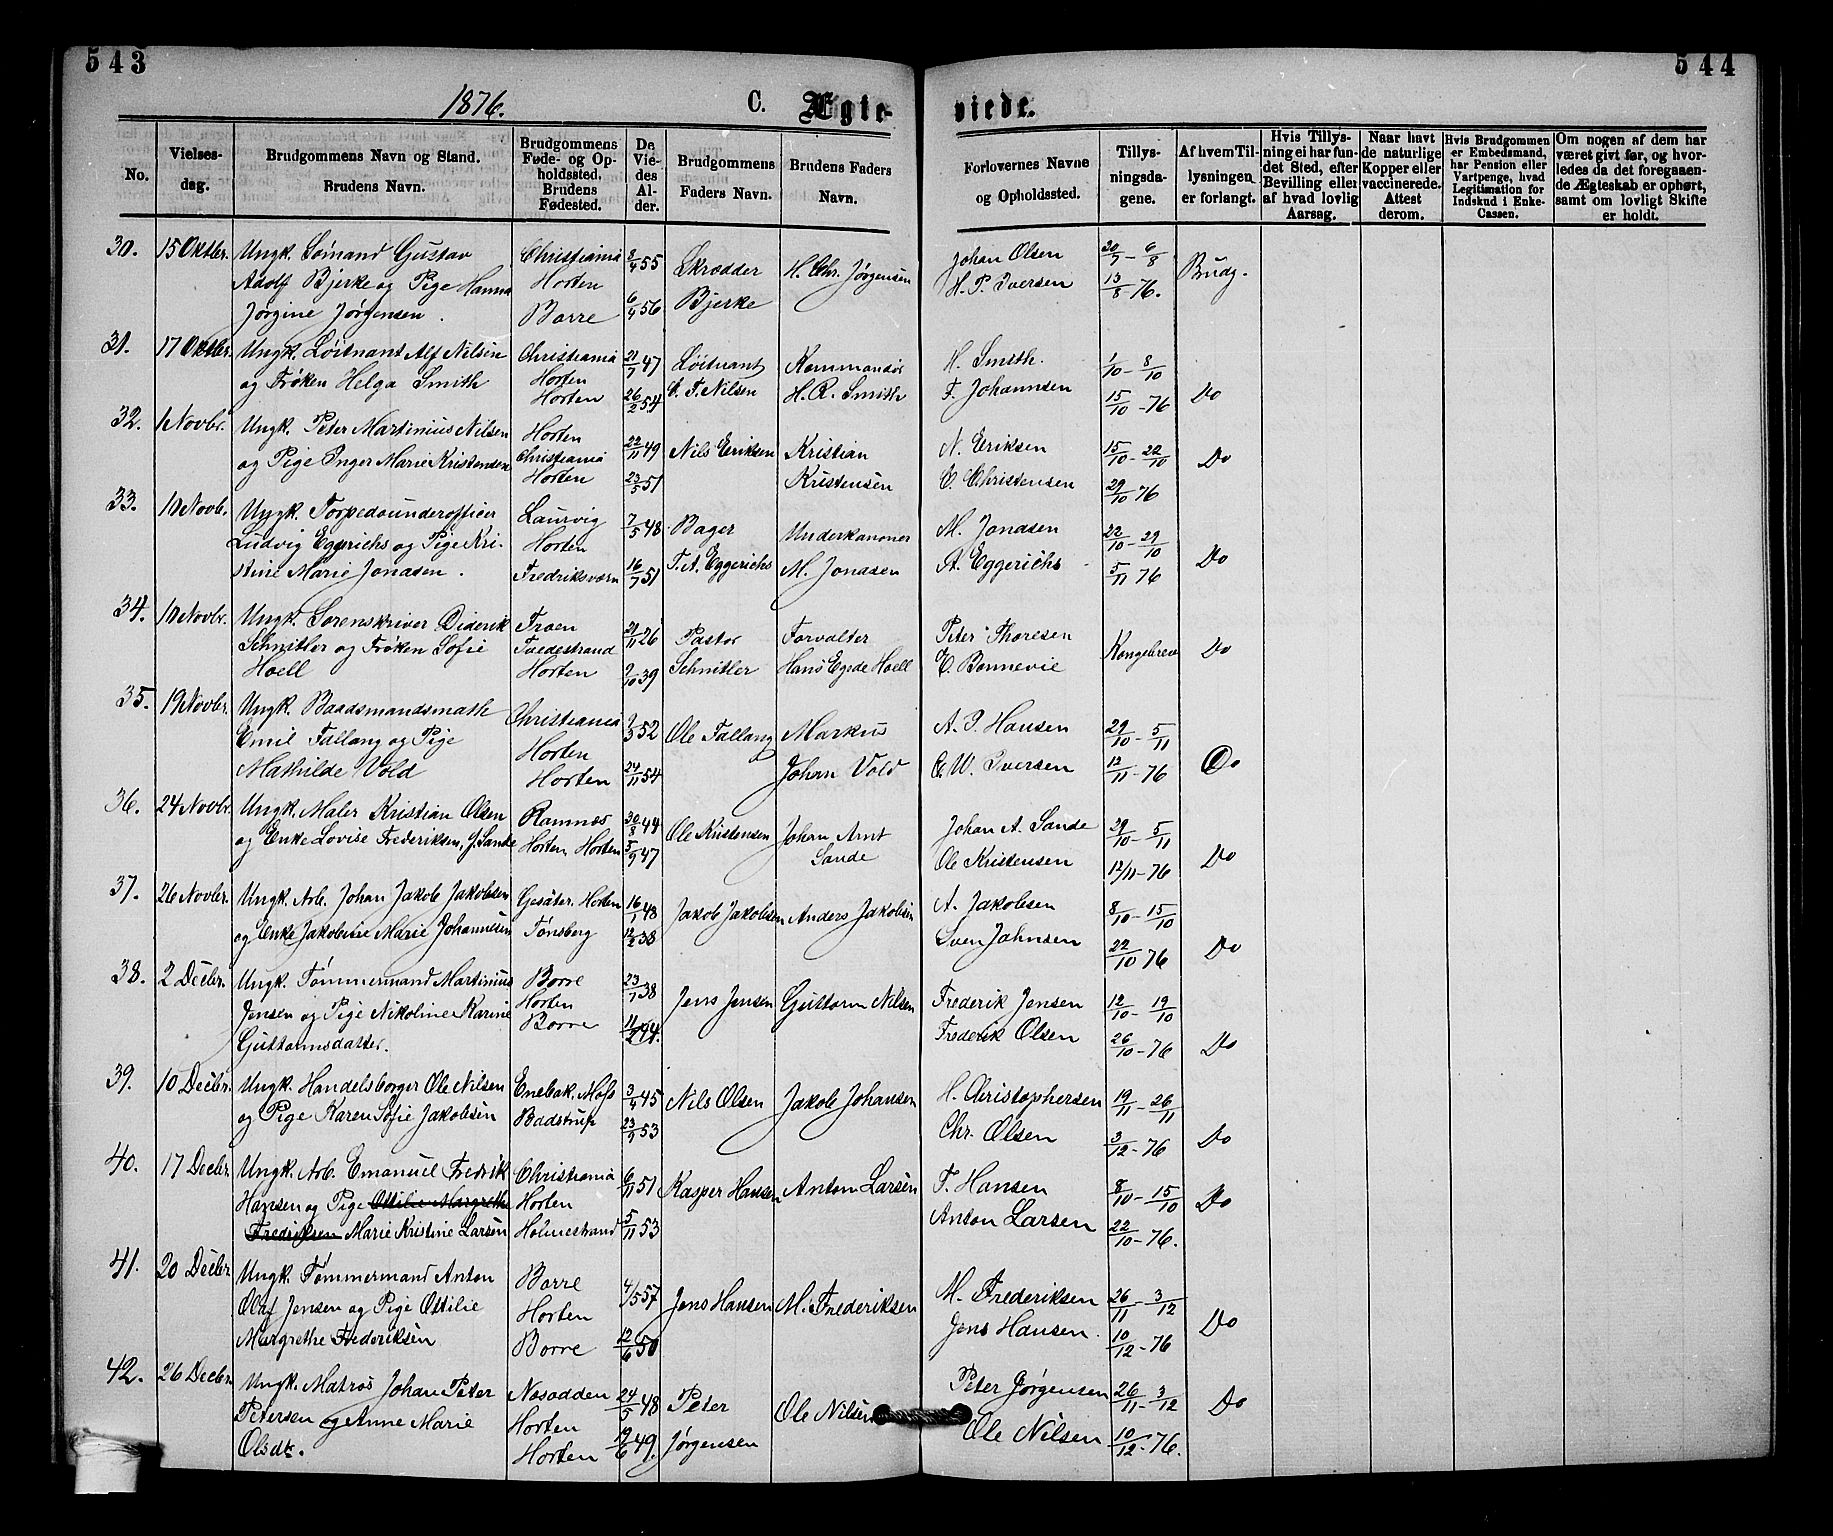 543
544
1876.
C.
Ægte-
viede.
No.
Vielses-
dag.
Brudgommens Navn og Stand.
Brudens Navn.
Brudgommens
Føde- og Op-
holdssted.
Brudens
Fødested.
De
Vie-
des
Al-
der.
Brudgommens
Faders Navn.
Brudens Faders
Navn.
Forlovernes Navne
og Opholdssted.
Tillys-
ningsda-
gene.
Af hvem Til-
lysningen
er forlangt.
Hvis Tillys-
ning ei har fun-
det Sted, efter
Bevilling eller
af hvad lovlig
Aarsag.
Naar havt
de naturlige
Kopper eller
vaccinerede.
Attest
derom.
Hvis Brudgommen
er Embedsmand,
har Pension eller
Vartpenge, hvad
Legitimation for
Indskud i Enke-
Cassen.
Om nogen af dem har
været givt før, og hvor-
ledes da det foregaaen-
de Ægteskab er ophørt,
samt om lovligt Skifte
er holdt.
30. 15 Oktbr. Ungk. Sømand Gustav Christiania 55 Skrædder H. Chr. Jørgensen Johan Olsen 20/7 - 6/8 Brudg.
Adolf Bjerke og Pige Hanna Horten 6/4 56 Bjerke H. P. Iversen 13/8 - 76.
Jørgine Jørgensen. Borre
31. 17 Oktbr. Ungk. Løitnant Alf Nilsen Christiania 21/7 47 Løitnant Kommandør H. Smith. 1/10 - 8/10
og Frøken Helga Smith Horten Horten 26/2 54 T. Nilsen H. R. Smith F. Johannsen 15/10 - 76 Do
32. 1 Novbr. Ungk. Peter Martinius Nilsen Horten 22/11 49 Nils Eriksen Kristian N. Eriksen 15/10 - 22/10 Do
og Pige Inger Marie Kristensen Christiania Horten 23/5 51 Kristensen C. Christensen 29/10 76
33. 10 Novbr. Ungk. Torpedounderofficer Laurvig 7/5 48 Bager Underkanoner M. Jonasen 22/10 - 29/10
Ludvig Eggerichs og Pige Kri- Horten T. A. Eggerichs M. Jonasen A. Eggerichs 5/11 76 Do
stine Marie Jonasen. Fredriksværn 16/7 51
34. 10 Novbr. Ungk. Sorenskriver Diderik Froen 21/11 26 Pastor Forvalter Peter Thoresen Kongebrev Do
Schnitler og Frøken Sofie Tvedestrand Schnitler Hans Egede Hoell E. Bonnevie
Hoell Horten 2/10 39
35. 19 Novbr. Ungk. Baadsmandsmath Christiania 52 Ole Fallang Markus A. P. Hansen 29/10 - 5/11
Emil Fallang og Pige Horten Johan Vold C. W. Iversen 12/11 - 76 Do
Mathilde Vold Horten 24/11 54
36. 24 Novbr. Ungk. Maler Kristian Olsen Ramnæs 20/8 44 Ole Kristensen Johan Arnt Johan A. Sande 29/10 - 5/11
og Enke Lovise Frederiksen, f. Sande Horten, Horten 5/9 47 Sande Ole Kristensen 12/11 - 76 Do
37. 26 Novbr. Ungk. Arb. Johan Jakob Jakobsen Gesäter. Horten 16/1 48 Jakob Jakobsen Anders Jakobsen A. Jakobsen 8/10 - 15/10
og Enke Jakobine Marie Johannesen Tønsberg 12/2 38 Sven Johnsen 22/10 76 Do
38. 2 Decbr. Ungk. Tømmermand Martinius Borre 23/1 38 Jens Jensen Guttorm Nilsen Frederik Jensen 12/10 - 19/10
Jensen og Pige Nikoline Karine Horten Borre 11/2 44. Frederik Olsen 26/10 - 76 Do
Guttormsdatter.
39. 10 Decbr. Ungk. Handelsborger Ole Nilsen Enebak. Moss 3/4 45 Nils Olsen Jakob Johansen H. Christophersen 19/11 - 26/11
og Pige Karen Sofie Jakobsen Badstrup 23/9 53 Chr. Olsen 3/12 - 76 Do
40. 17 Decbr. Ungk. Arb. Emanuel Fredrik Christiania 6/11 51 Kasper Hansen Anton Larsen F. Hansen 8/10 - 15/10 Do
Hansen og Pige Ottilie Margrethe Horten Anton Larsen 22/10 - 76.
Fredriksen Marie Kristine Larsen Holmestrand 5/11 53
41. 20 Decbr. Ungk. Tømmermand Anton Borre 4/5 57 Jens Hansen M. Frederiksen M. Frederiksen 26/11 - 3/12
Olaf Jensen og Pige Ottilie Horten Jens Hansen. 10/12 - 76 Do
Margrethe Frederiksen Borre 12/6 50
42. 26 Decbr. Ungk. Matros Johan Peter Næsodden 24/5 48 Peter Ole Nilsen Peter Jørgensen 26/11 - 3/12 Do
Petersen og Anne Marie Horten Jørgensen Ole Nilsen 10/12 - 76.
Olsdt. Horten 19/6 49.